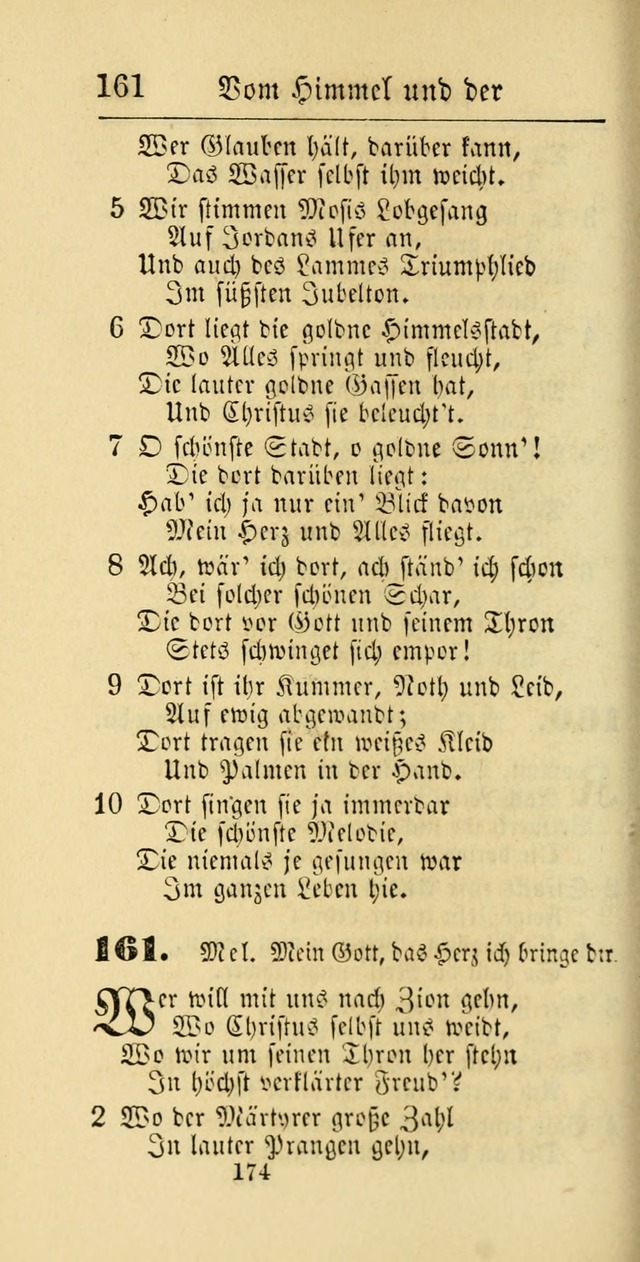 161 Vom Himmel und der
Wer Glauben hält, darüber kann,
Das Wasser selbst ihm weicht.
5 Wir stimmen Mosis Lobgesang
Auf Jordans Ufer an,
Und auch des Lammes Triumphlied
Im süßsten Jubelton.
6 Dort liegt die goldne Himmelsstadt,
Wo Alles springt und fleucht,
Die lauter goldne Gassen hat,
Und Christus sie beleucht't.
7 O schönste Stadt, o goldne Sonn'!
Die dort darüben liegt:
Hab' ich ja nur ein' Blick davon
Mein Herz und Alles fliegt.
8 Ach, wär' ich dort, ach ständ' ich schon
Bei solcher schönen Schar,
Die dort vor Gott und seinem Thron
Stets schwinget sich empor!
9 Dort ist ihr Kummer, Noth und Leid,
Auf ewig abgewandt;
Dort tragen sie ein weißes Kleid
Und Palmen in der Hand.
10 Dort singen sie ja immerdar
Die schönste Melodie,
Die niemals je gesungen war
Im ganzen Leben hie.
161. Mel. Mein Gott, das Herz ich bringe dir.
Wer will mit uns nach Zion gehn,
Wo Christus selbst uns weidt,
Wo wir um seinen Thron her stehn
In höchst verklärter Freud'?
2 Wo der Märtyrer große Zahl
In lauter Prangen gehn,
174